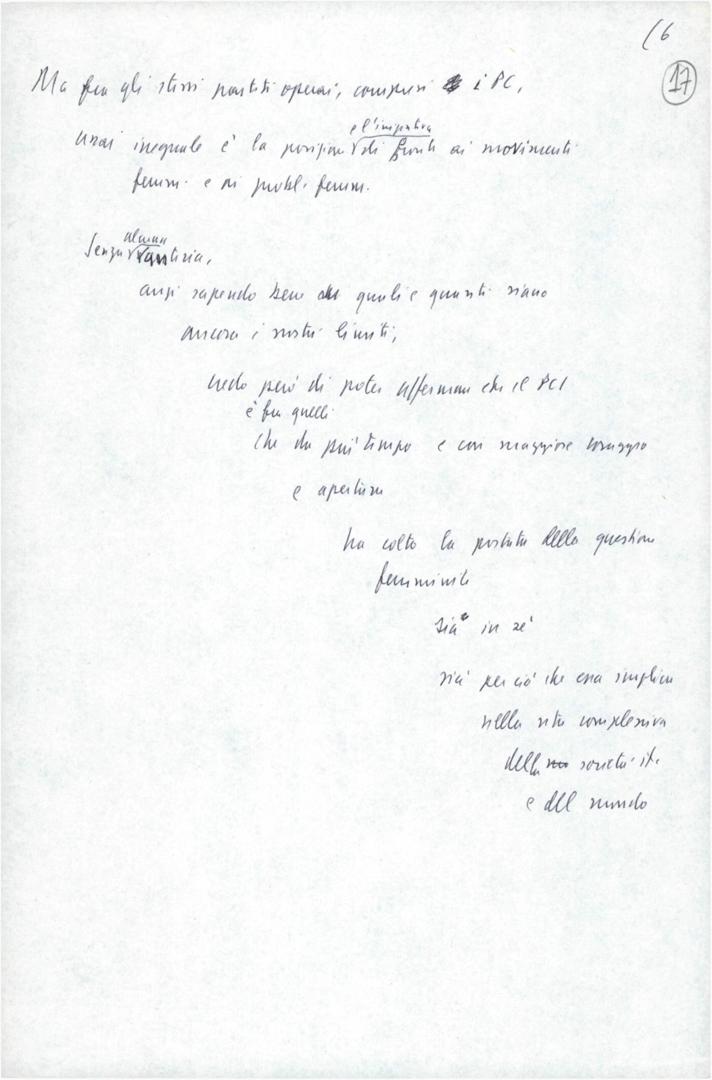 16
17
Ma fra gli stessi partiti operai, compresi i PC,
e l'iniziativa
assai ineguale è la posizione di fronte ai movimenti
femm. e ai probl. femm.
alcuna
Senza vanteria,
anzi sapendo bene quali e quanti siano
ancora i nostri limiti,
credo però di poter affermare che il PCI
è fra quelli
che da più tempo e con maggiore coraggio
e apertura
ha colto la portata della questione
femminile
sia in sé
sia per ciò che essa implica
nella vita complessiva
della società it.
e del mondo